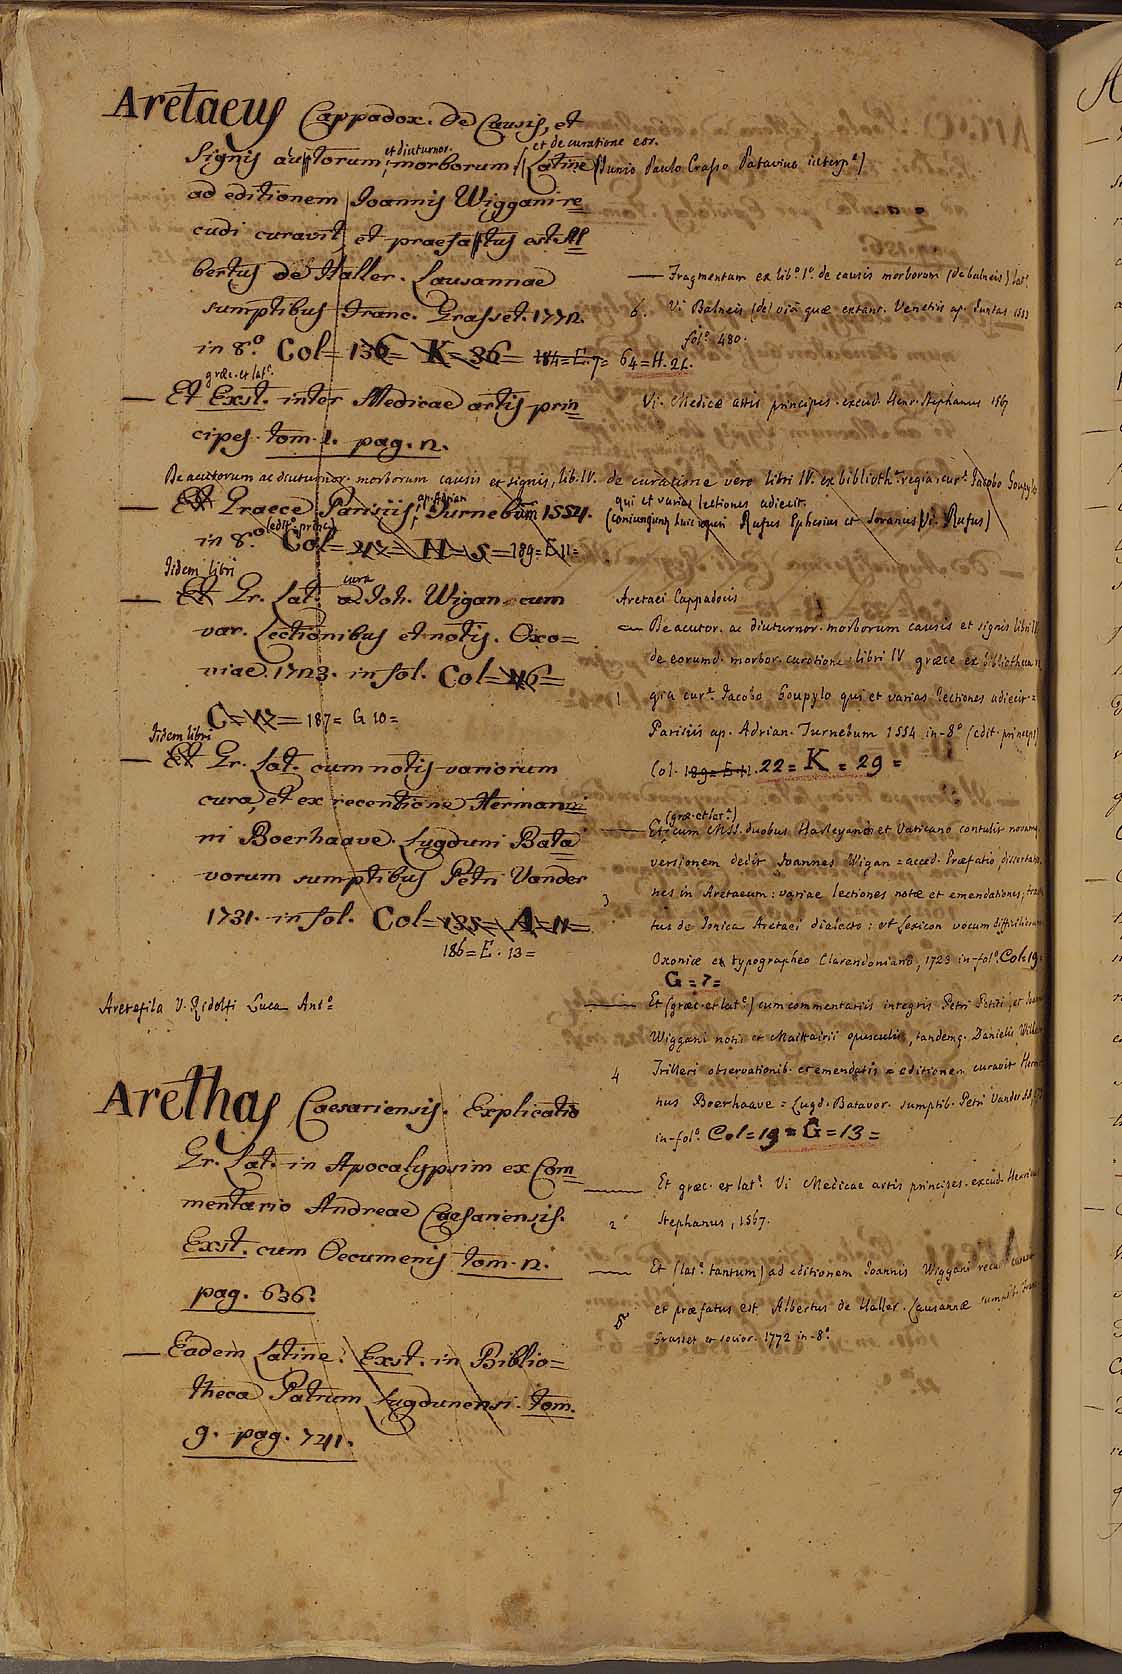 Aretaeus Cappadox. De Causis, et
et diuturnor. et de curatione eor.
Signis acutorum, morborum. Latine (Junio Paulo Crasso Patavino interp.e)
ad editionem Joannis Wiggani re
cudi curavit, et praefatus est Al
bertus de Haller. Lausannae
sumptibus Franc. Grasset. 1772.
in 8.o Col= 136= K=36= 184=E.7= 64=H.21.
græc. et lat.e
— Et Exst. inter Medicae artis prin
cipes. tom. 1. pag. 2.
De acutorum ac diuturnor. morborum causis et signis, lib. IV. de curatione vero libri IV. ex biblioth.a regia, cur.t Jacobo Goupylo
ap. Adrian
— Et Graece Parisiis, Turnebum 1554. qui et varias lectiones adiecit.
(edit.o princ.) (coniungunt huic Rufus Ephesius et Soranus Vi. Rufus)
in 8.o Col= 217= H=5= 189=E 11=
Iidem libri
cura
— Et Gr. Lat. a Joh. Wigan cum
var. Lectionibus et notis. Oxo=
niae. 1723. in fol. Col= 116=
C=12= 187= G 10=
Iidem libri
— Et Gr. Lat. cum notis variorum
cura, et ex recentione Herman
ni Boerhaave. Lugduni Bata
vorum sumptibus Petri Vander
1731. in fol. Col= 135= A=11=
186=E.13=
Aretefila V. Ridolfi Luca Ant.o
Arethas Caesariensis. Explicatio
Gr. Lat. in Apocalypsim ex Com
mentario Andreae Caesariensis.
Exst. cum Oecumenis tom. 2.
pag. 636.
— Eadem Latine. Exst. in Biblio=
theca Patrum Lugdunensi. tom.
9. pag. 741.
— Fragmentum ex lib.o 1.o de causis morborum (de balneis) lat.e
6. Vi Balneis (de) omnia quæ extant. Venetiis ap. Juntas 1553
fol.o 480.
Vi. Medicæ artis principes. excud. Henr. Stephanus 1567
Aretaei Cappadocis
— De acutor. ac diuturnor. morborum causis et signis libri IV
de eorumd. morbor. curatione libri IV græce ex bibliotheca re
1 gia cur.t Jacobo Goupylo qui et varias lectiones adiecit =
Parisiis ap. Adrian. Turnebum 1554 in-8.o (edit. princeps)
Col. 189=E 11. 22= K = 29 =
(græ. et lat.e)
— Et cum MSS. duobus Harleyano et Vaticano contulit novamq.
versionem dedit Joannes Wigan = acced. Præfatio, dissertatio
3 nes in Aretaeum: variae lectiones notæ et emendationes, trac
tus de Ionica Aretaei dialecto: et Lexicon vocum difficiliorum
Oxoniæ ex typographeo Clarendoniano, 1723 in-fol.o Col=19=
G=7=
— Et (græc. et lat.e) cum commentariis integris Petri Petiti, et Joan
Wiggani notis et Maittairii opusculis, tandemq. Danielis Wilhel
4 Trilleri observationib. et emendatis = editionem curavit Herma
nus Boerhaave = Lugd. Batavor. sumptib. Petri Vander Aa
in-fol.o Col=19= G=13=
— Et græc. et lat.e Vi Medicae artis principes. excud. Henricus
2 Stephanus, 1567.
— Et (lat.e tantum) ad editionem Joannis Wiggani recudi curavit
5 et præfatus est Albertus de Haller. Lausannæ sumptib. Franc
Grasset et socior. 1772 in-8.o